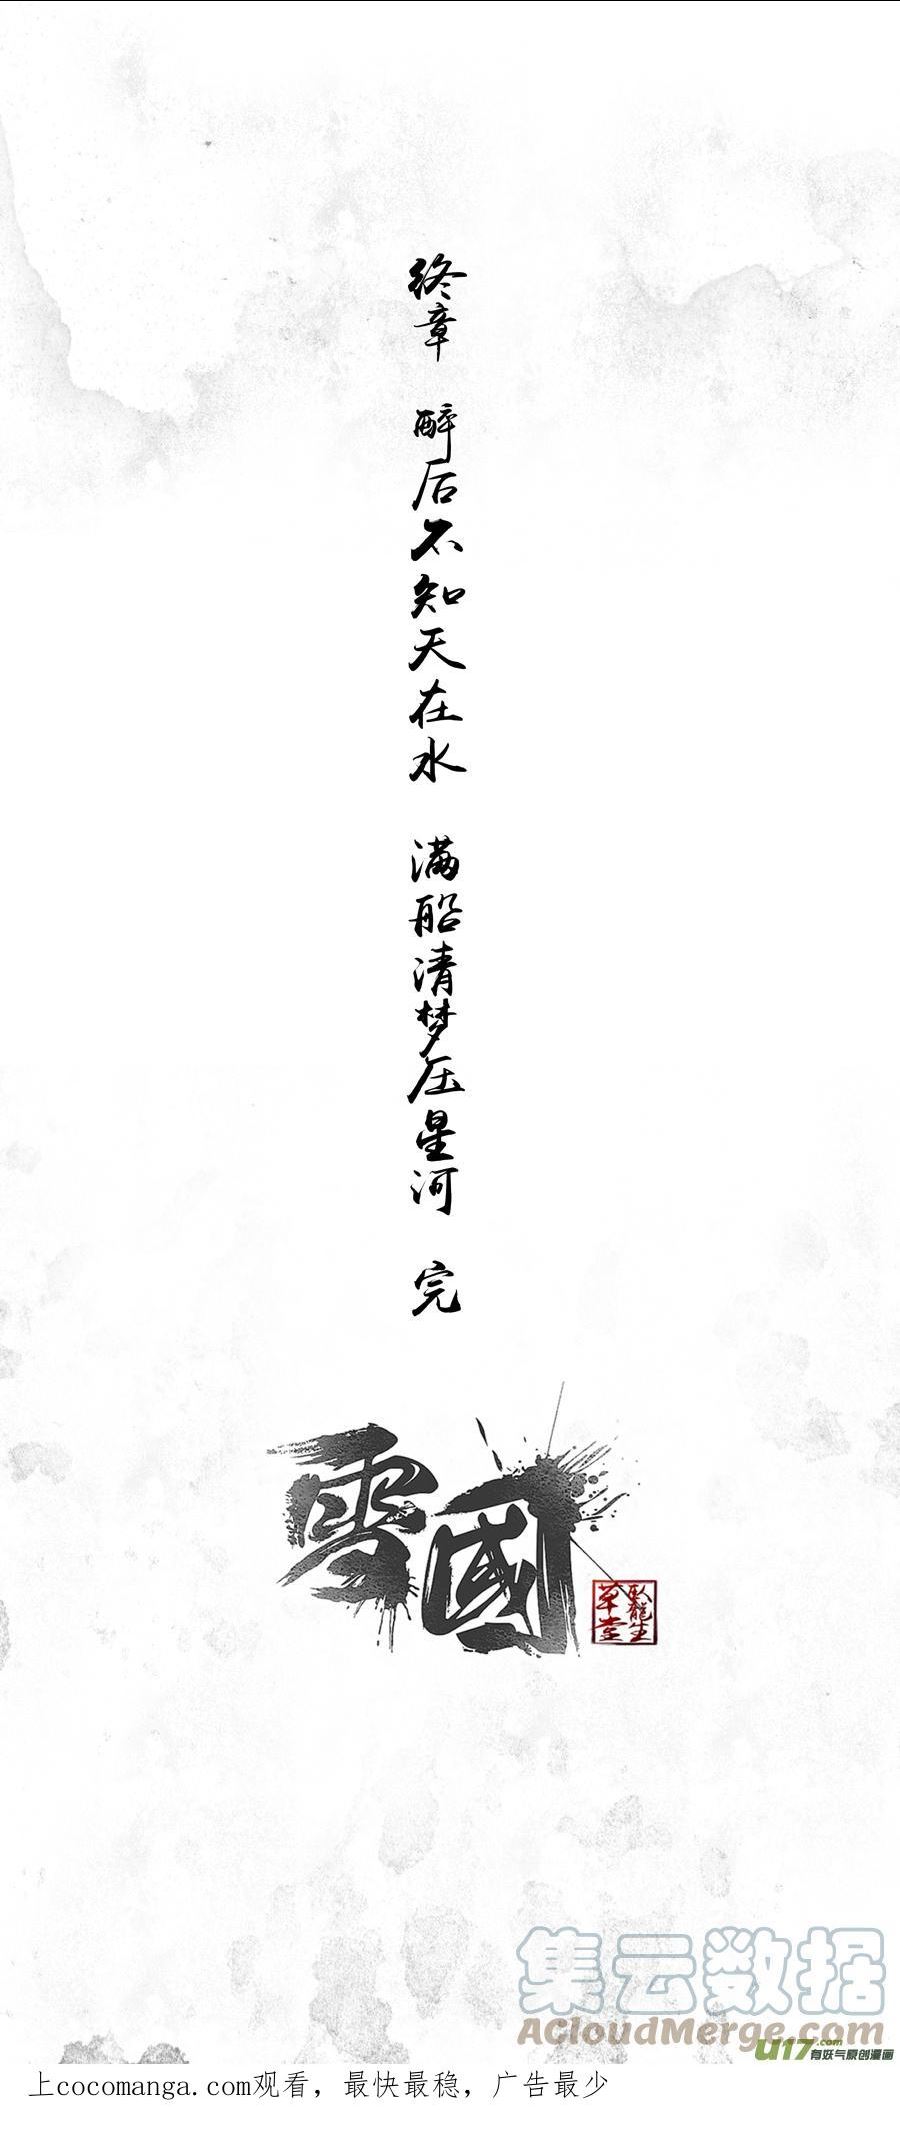 终章 醉后不知天在水 满船清梦压星河 完
雪國
臥龍生
草堂
集云数据
AcloudMerge.com
U17.com
有妖气原创漫画
上cocomanga.com观看，最快最稳，广告最少